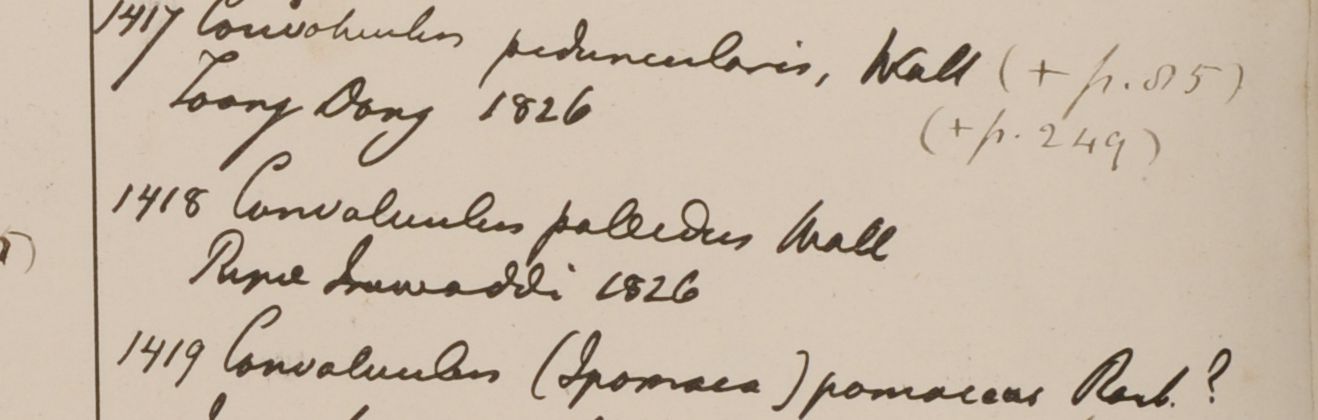 1417 Convolvulus peduncularis, Wall (+ p. 85)
Toong Dong 1826 (+ p. 249)
1418 Convolvulus pallidus Wall
Ripæ Irawaddi 1826
1419 Convolvulus (Ipomaea) pomaceus Roxb. ?